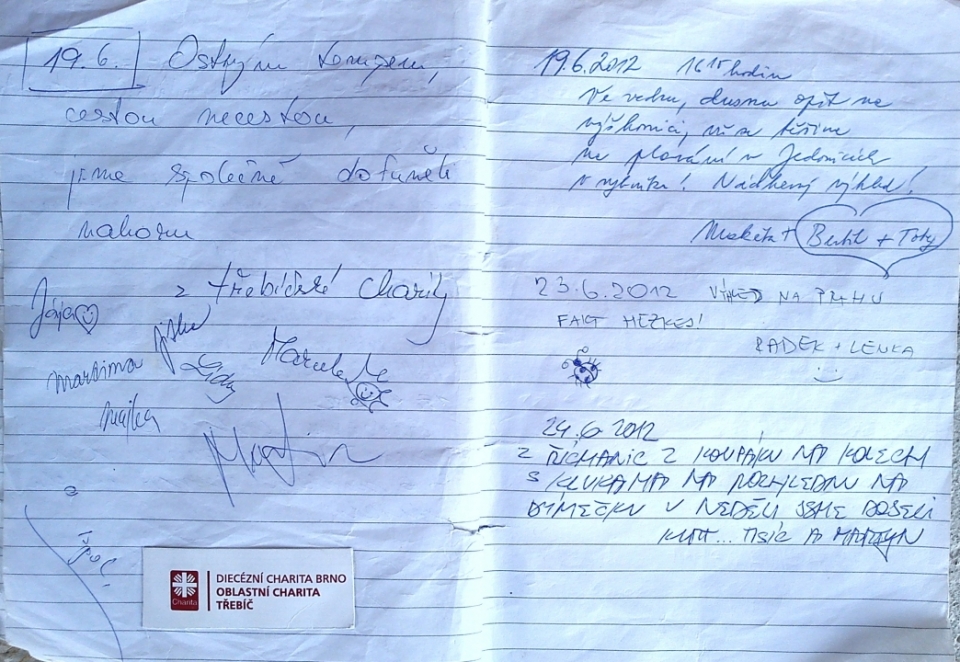 19.6. Ostrým tempem,
cestou necestou,
jsme společně dofuněli
nahoru
z třebíčské charity
Jája
Jitka
Martina
Lidka
Marcela
Majka
Martin
Charita
DIECÉZNÍ CHARITA BRNO
OBLASTNÍ CHARITA
TŘEBÍČ
19.6.2012 16 15 hodin
Ve vedru, dusnu opět na
výškovici, už se těšíme
na plavání v Jedovnicích
v rybníku! Nádherný výhled!
Markéta + Bertík + Toty
23.6.2012 VÝHLED NA PRAHU
FAKT HEZKEJ!
RADEK + LENKA
24.6 2012
Z ŘÍČMANIC Z KOUPÁKU NA KOLECH
S KLUKAMA NA ROZHLEDNU NA
V NEDĚLI JSME DOŠELI
A MARTYN